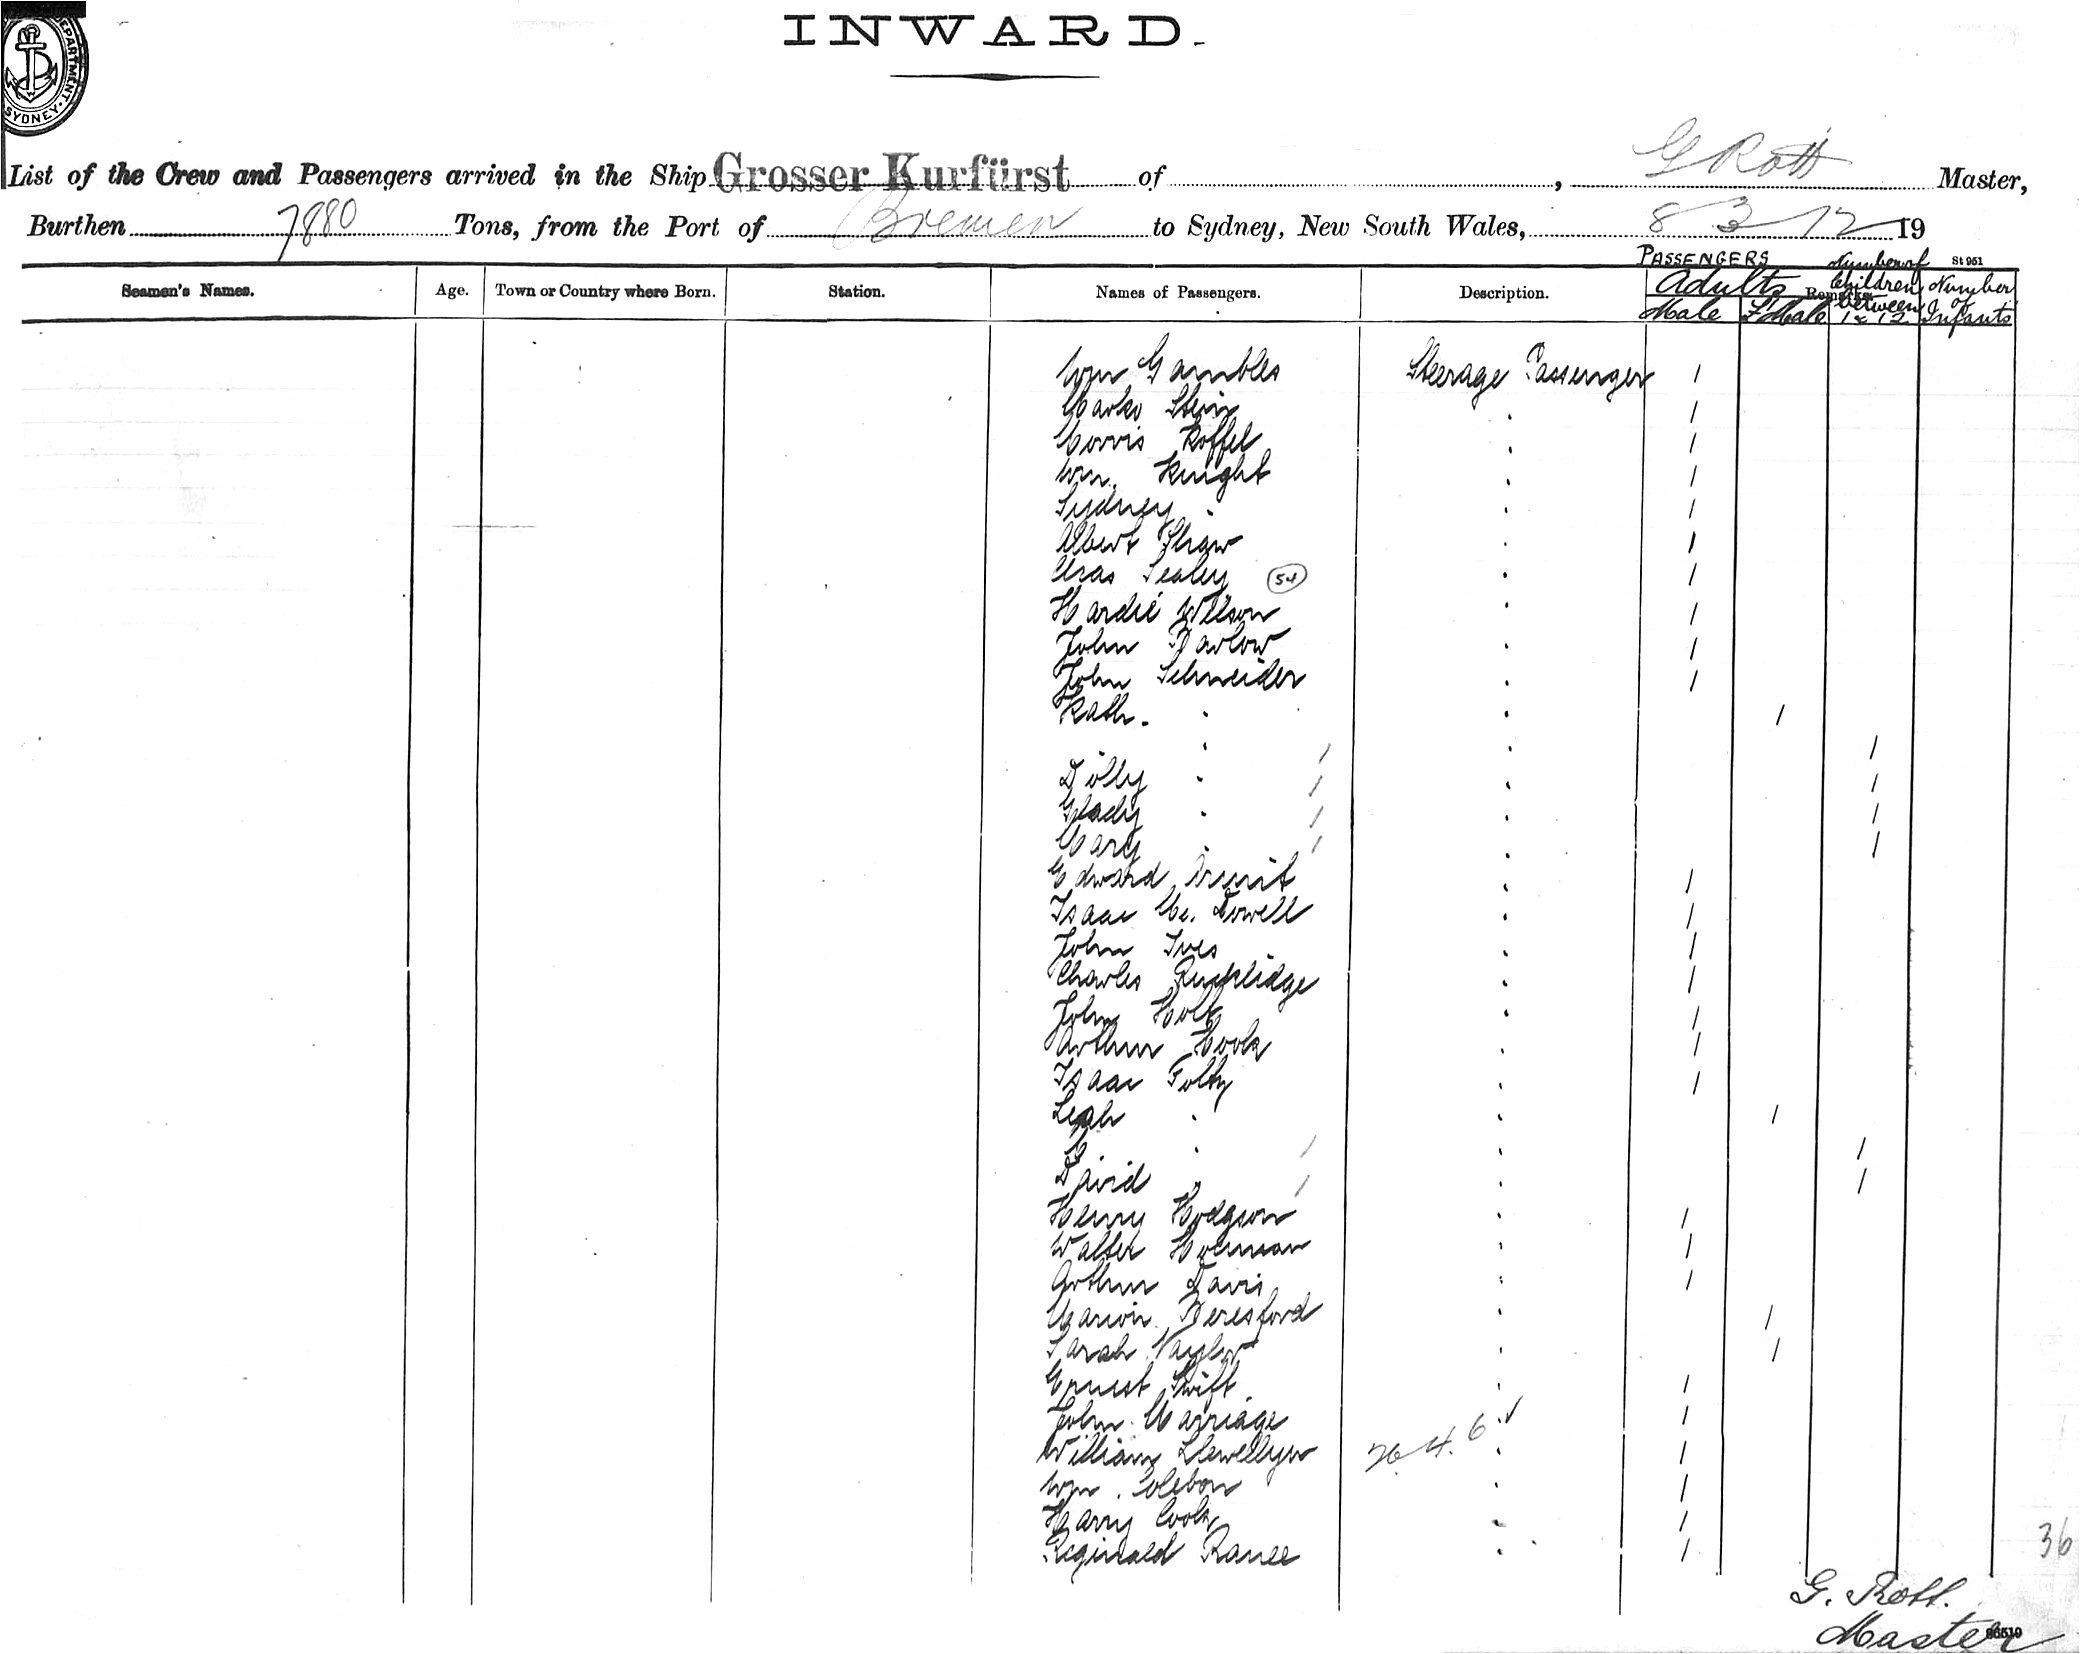 INWARD.
DEPARTMENT. SYDNEY
List of the Crew and Passengers arrived in the Ship Grosser Kurfürst of , G Rott Master,
Burthen 7880 Tons, from the Port of Bremen to Sydney, New South Wales, 8 3 12 19
PASSENGERS St 951
Seamen's Names. Age. Town or Country where Born. Station. Names of Passengers. Description. Adults Remarks Number of Children between 1 & 12 Number of Infants
Male F Male
Wm Gambles Steerage Passenger 1
Marks Stein " 1
Morris Koffel " 1
Wm. Knight " 1
Sydney " " 1
Albert Shaw " 1
Chas Sealey 54 " 1
Hardie Wilson " 1
John Barlow " 1
John Schneider " 1
Kath. " " 1
" 1 " 1
Dolly " 1 " 1
Glady " 1 " 1
Mary " 1 " 1
Edward " 1
Isaac Mc. Dowell " 1
John Ives " 1
Charles " 1
John Holt " 1
Arthur Hook " 1
Isaac " 1
Leah " " 1
" 1 " 1
David " 1 " 1
Henry Hodgson " 1
Walter " 1
Arthur Davis " 1
Marion Beresford " 1
Sarah Naylor " 1
Ernest Swift " 1
John Marriage " 1
William Llewellyn 26 4. 6 " 1
Wm. Colebon " 1
Harry Cook " 1
Reginald " 1
36
G. Rott.
Master